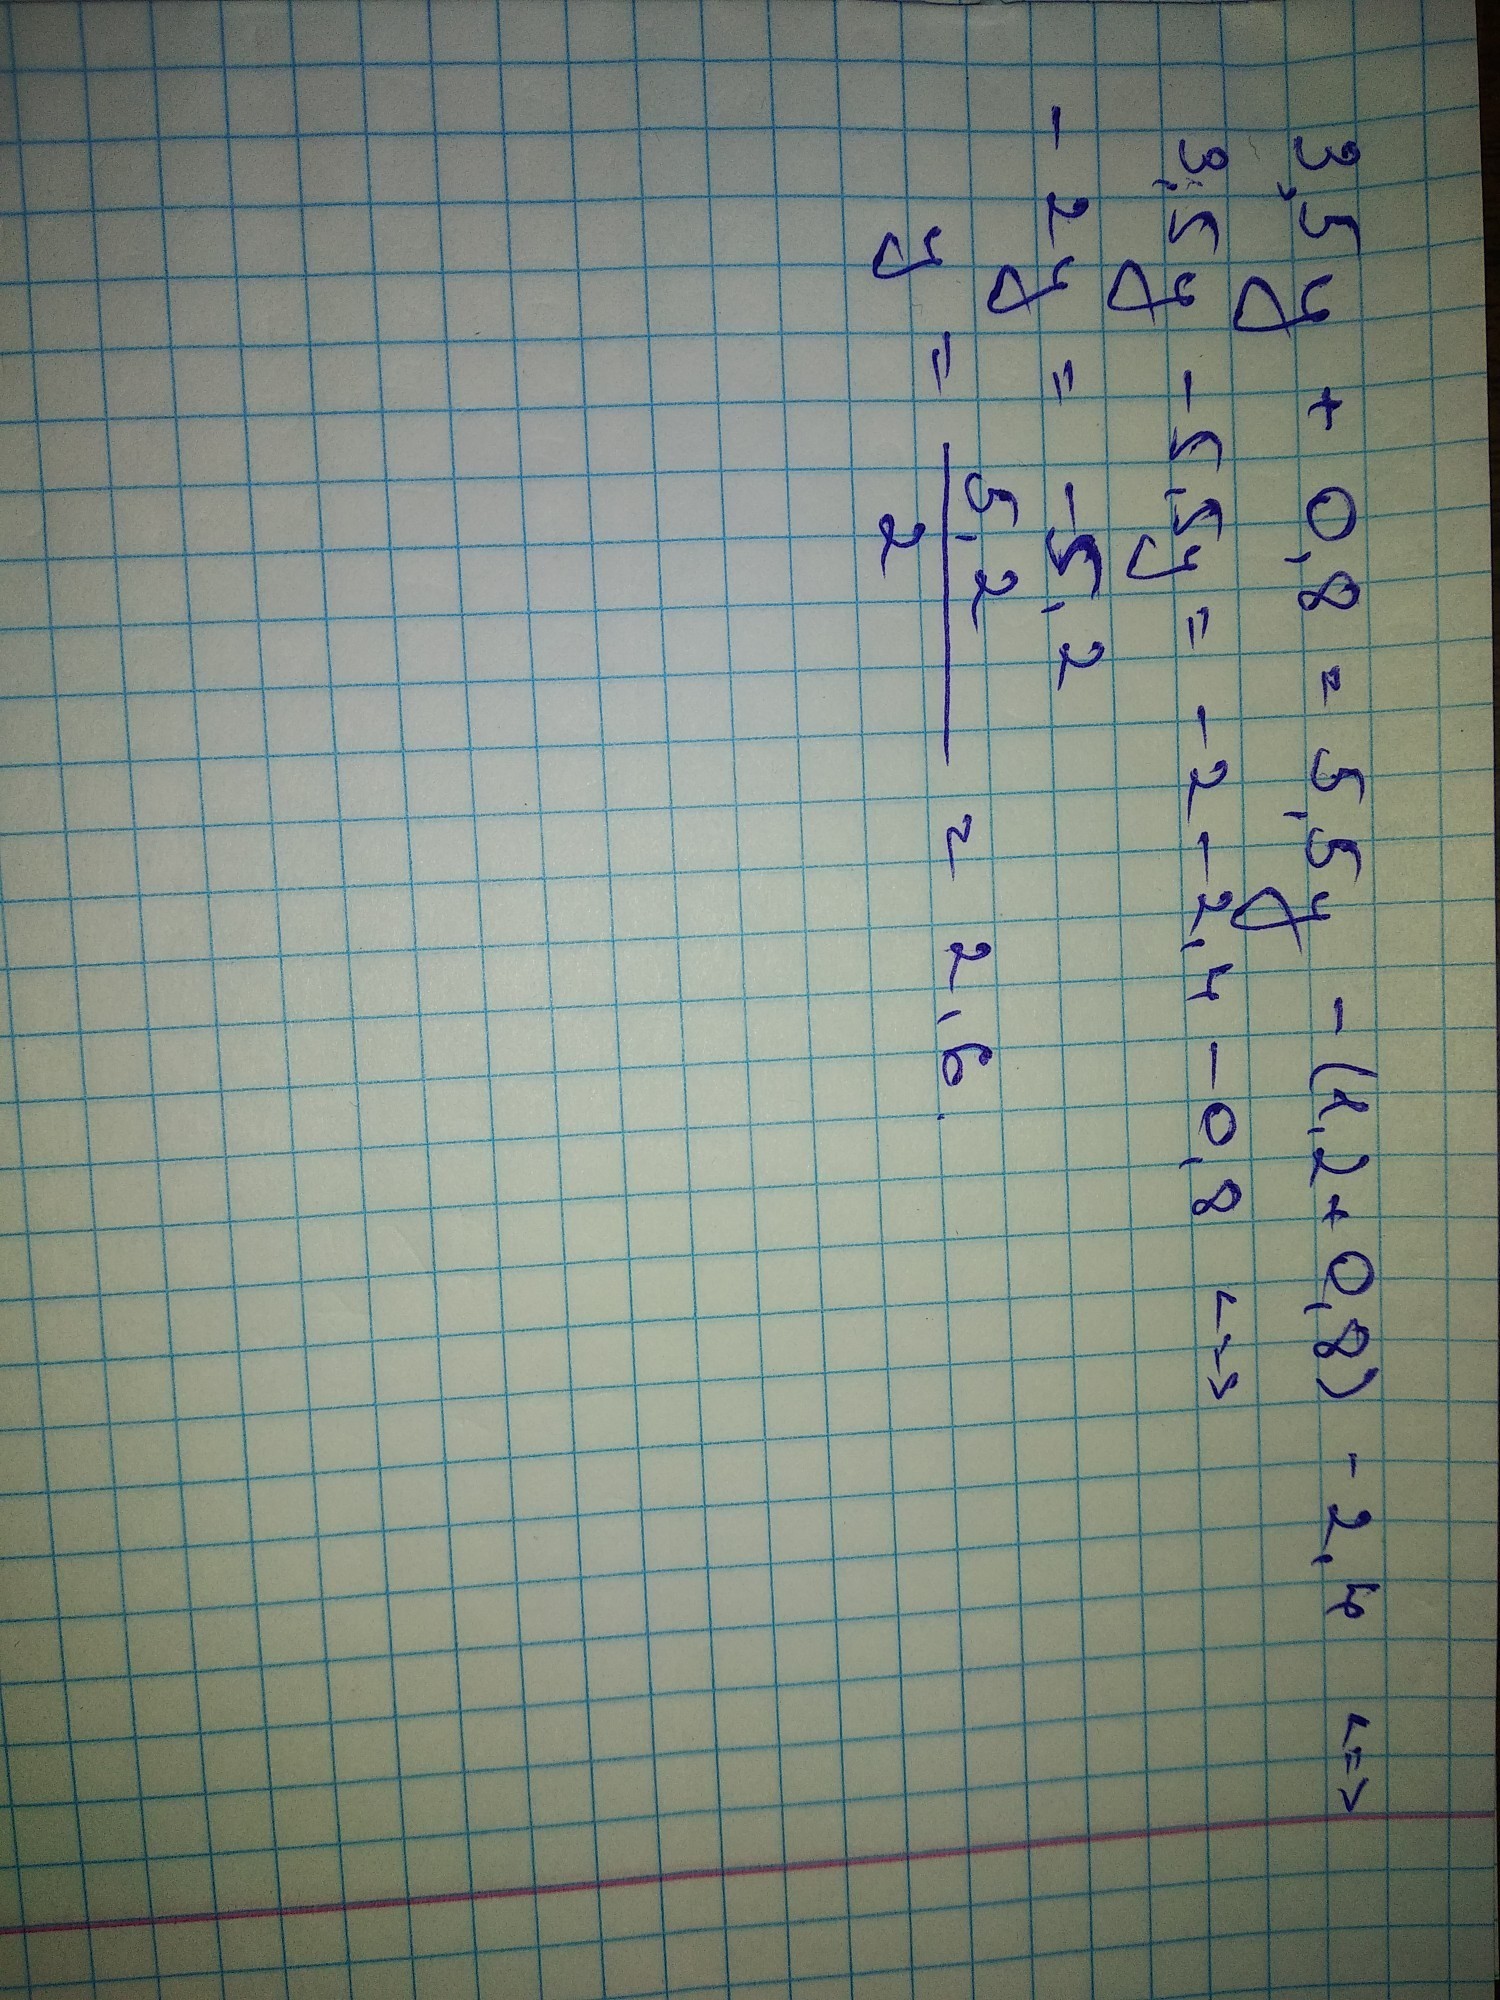 3,5y + 0,8 = 5,5y - (1,2 + 0,8) - 2,4 <=>
3,5y - 5,5y = -2 - 2,4 - 0,8 <=>
-2y = -5,2
y = 5,2 / 2 = 2,6.